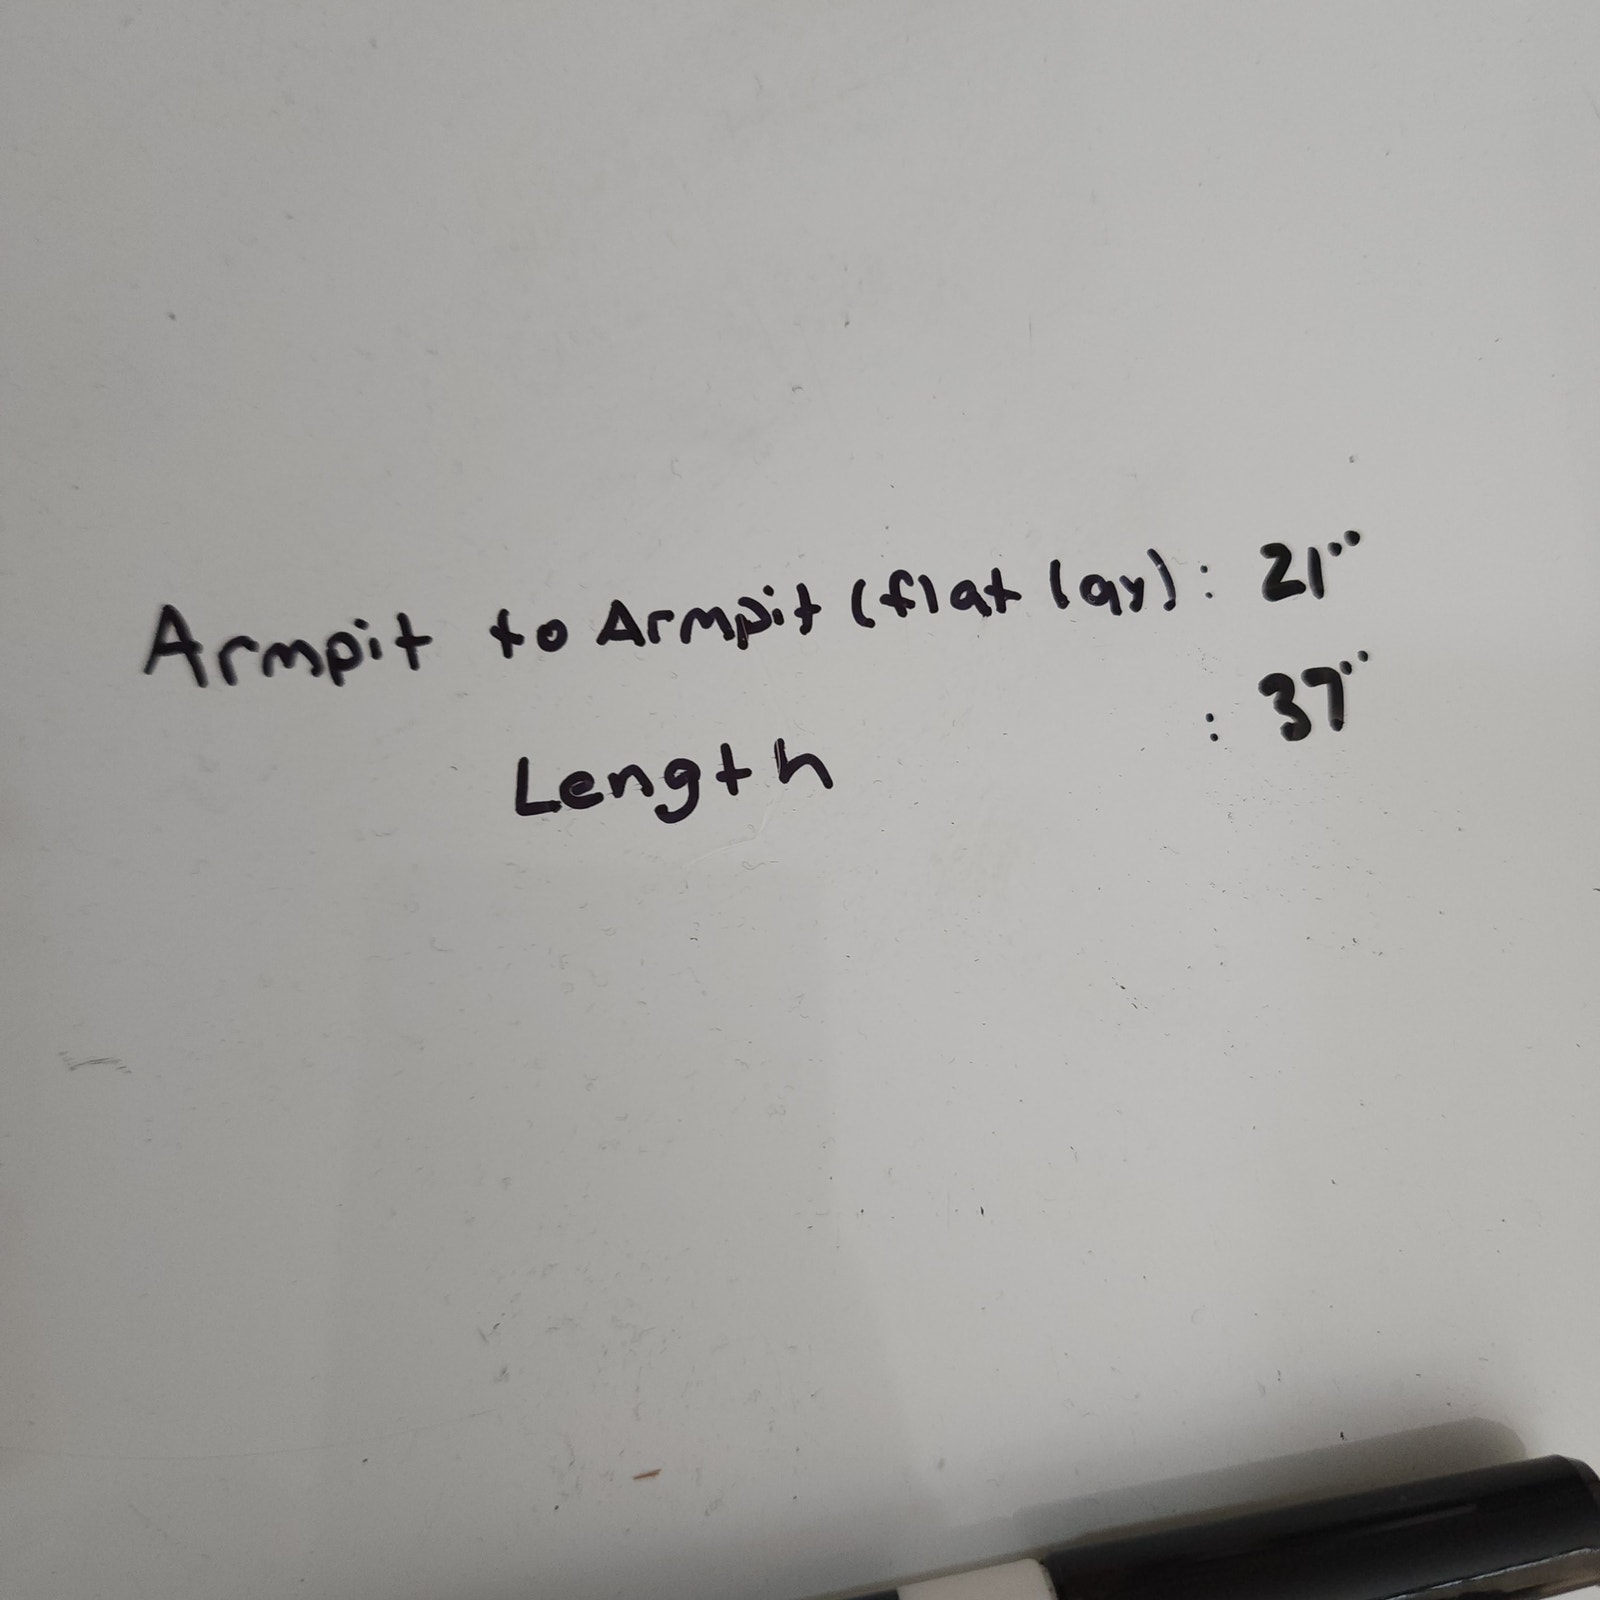 Armpit to Armpit (flat lay): 21"
Length : 37"